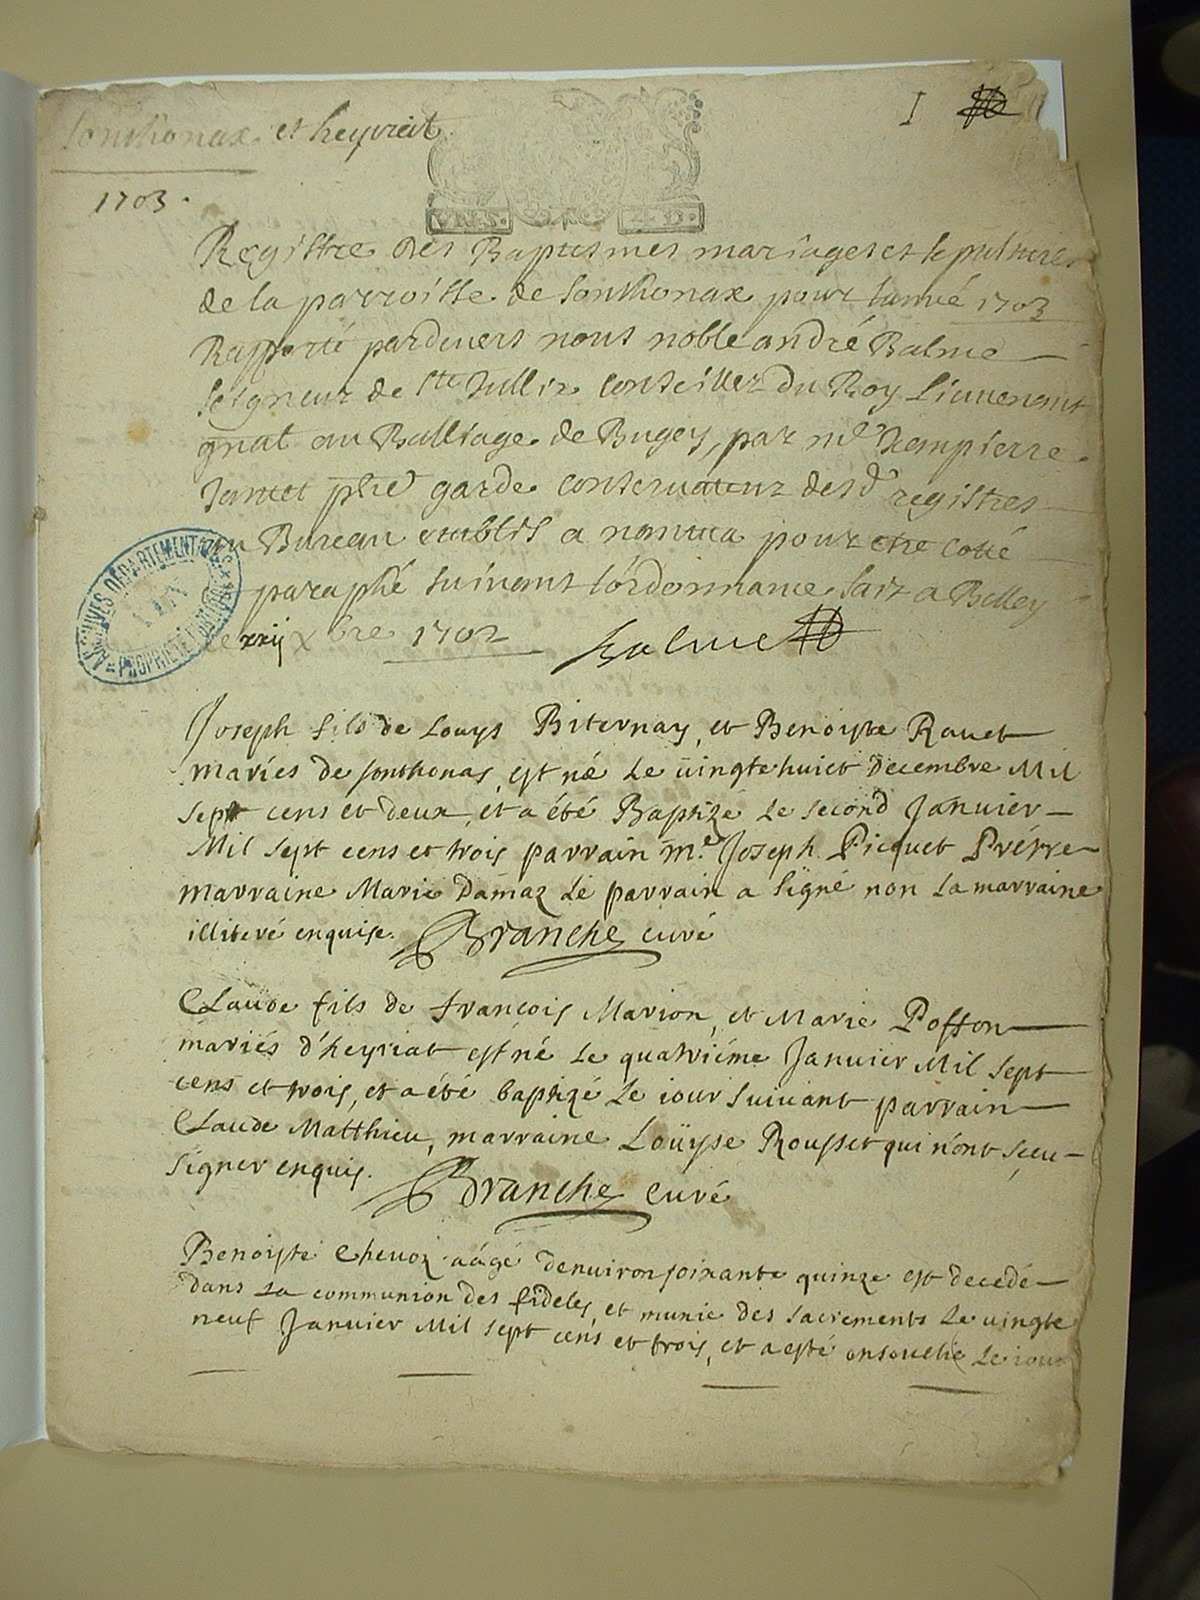 Sonthonax et heyriat
I
1703.
VN.S. 4.D.
Registre des Baptesmes mariages et sepultures
de la parroisse de Sonthonax pour lannée 1703
Rapporté pardevers nous noble andré Balme
seigneur de Ste Jullie conseiller du Roy Lieutenant
gnal au Balliage de Bugey, par mre
phe garde conservateur desd registres
au Bureau establis a nantua pour etre cotté
paraphé suivant l'ordonnance fait a Belley
le xxij xbre 1702 Balme
ARCHIVES DÉPARTEMENTALES
AIN
PROPRIÉTÉ PUBLIQUE
Joseph fils de Louys Biternay, et Benoiste Ravet
mariés de sonthonas, est né Le vingthuict Decembre Mil
sept cens et deux, et a été Baptizé Le second Janvier
Mil sept cens et trois parrain m.e Joseph Picquet Prétre
marraine Marie Damaz Le parrain a signé non la marraine
illiteré enquise. Branche curé
Claude fils de francois Marion, et Marie Poffon
mariés d'heyriat est né Le quatriéme Janvier Mil sept
cens et trois, et a été baptizé Le iour suivant parrain
Claude Matthieu, marraine Loüyse Rousset qui n'ont sceu
signer enquis. Branche Curé
Benoiste Chevoz aâgé denviron soixante quinze est decedé
dans La communion des fideles, et munie des sacrements Le vingte
neuf Janvier Mil sept cens et trois, et a esté ensevelie Le iour